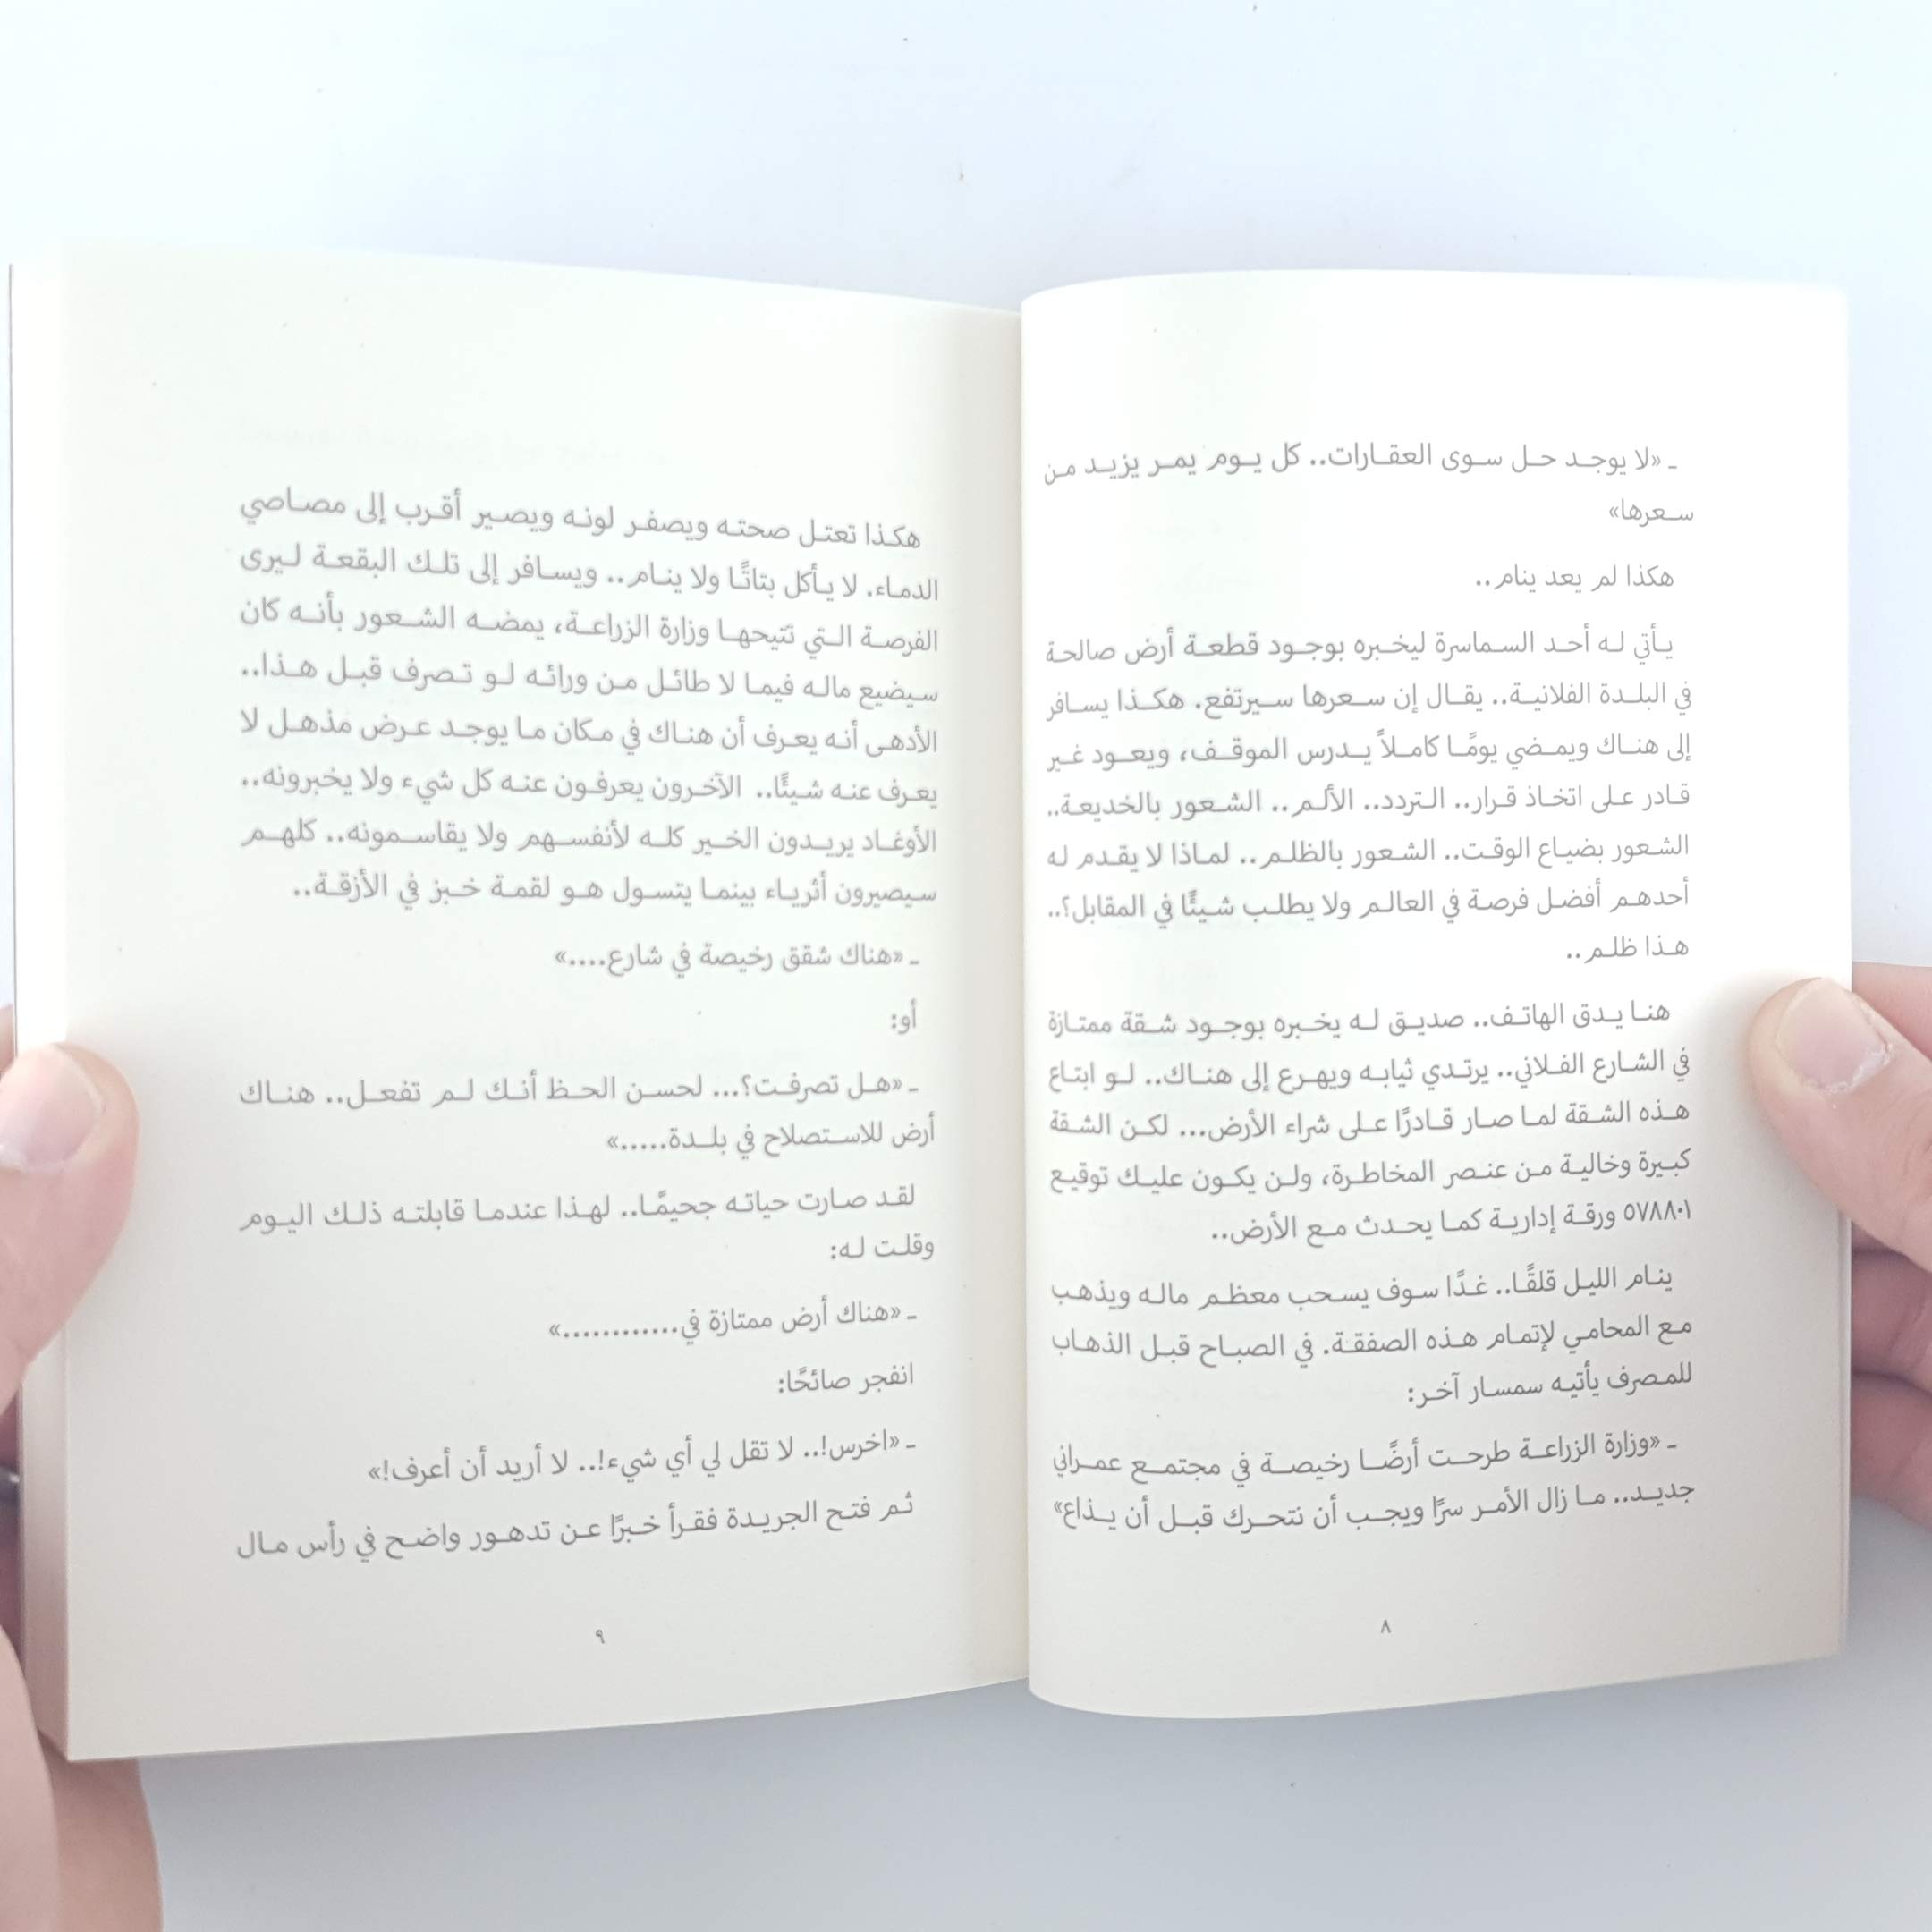 ـ «لا يوجد حل سوى العقارات.. كل يوم يمر يزيد من
سعرها»
هكذا لم يعد ينام..
يأتي له أحد السماسرة ليخبره بوجود قطعة أرض صالحة
في البلدة الفلانية.. يقال إن سعرها سيرتفع. هكذا يسافر
إلى هناك ويمضي يومًا كاملاً يدرس الموقف، ويعود غير
قادر على اتخاذ قرار.. التردد.. الألم.. الشعور بالخديعة..
الشعور بضياع الوقت.. الشعور بالظلم.. لماذا لا يقدم له
أحدهم أفضل فرصة في العالم ولا يطلب شيئًا في المقابل؟..
هذا ظلم..
هنا يدق الهاتف.. صديق له يخبره بوجود شقة ممتازة
في الشارع الفلاني.. يرتدي ثيابه ويهرع إلى هناك.. لو ابتاع
هذه الشقة لما صار قادرًا على شراء الأرض... لكن الشقة
كبيرة وخالية من عنصر المخاطرة، ولن يكون عليك توقيع
٥٧٨٨٠١ ورقة إدارية كما يحدث مع الأرض..
ينام الليل قلقًا.. غدًا سوف يسحب معظم ماله ويذهب
مع المحامي لإتمام هذه الصفقة. في الصباح قبل الذهاب
للمصرف يأتيه سمسار آخر:
ـ «وزارة الزراعة طرحت أرضًا رخيصة في مجتمع عمراني
جديد.. ما زال الأمر سرًا ويجب أن نتحرك قبل أن يذاع»
٨
هكذا تعتل صحته ويصفر لونه ويصير أقرب إلى مصاصي
الدماء. لا يأكل بتاتًا ولا ينام.. ويسافر إلى تلك البقعة ليرى
الفرصة التي تتيحها وزارة الزراعة، يمضه الشعور بأنه كان
سيضيع ماله فيما لا طائل من ورائه لو تصرف قبل هذا..
الأدهى أنه يعرف أن هناك في مكان ما يوجد عرض مذهل لا
يعرف عنه شيئًا.. الآخرون يعرفون عنه كل شيء ولا يخبرونه..
الأوغاد يريدون الخير كله لأنفسهم ولا يقاسمونه.. كلهم
سيصيرون أثرياء بينما يتسول هو لقمة خبز في الأزقة..
ـ «هناك شقق رخيصة في شارع....»
أو:
ـ «هل تصرفت؟... لحسن الحظ أنك لم تفعل.. هناك
أرض للاستصلاح في بلدة.....»
لقد صارت حياته جحيمًا.. لهذا عندما قابلته ذلك اليوم
وقلت له:
ـ «هناك أرض ممتازة في............»
انفجر صائحًا:
ـ «اخرس!.. لا تقل لي أي شيء!.. لا أريد أن أعرف!»
ثم فتح الجريدة فقرأ خبرًا عن تدهور واضح في رأس مال
٩